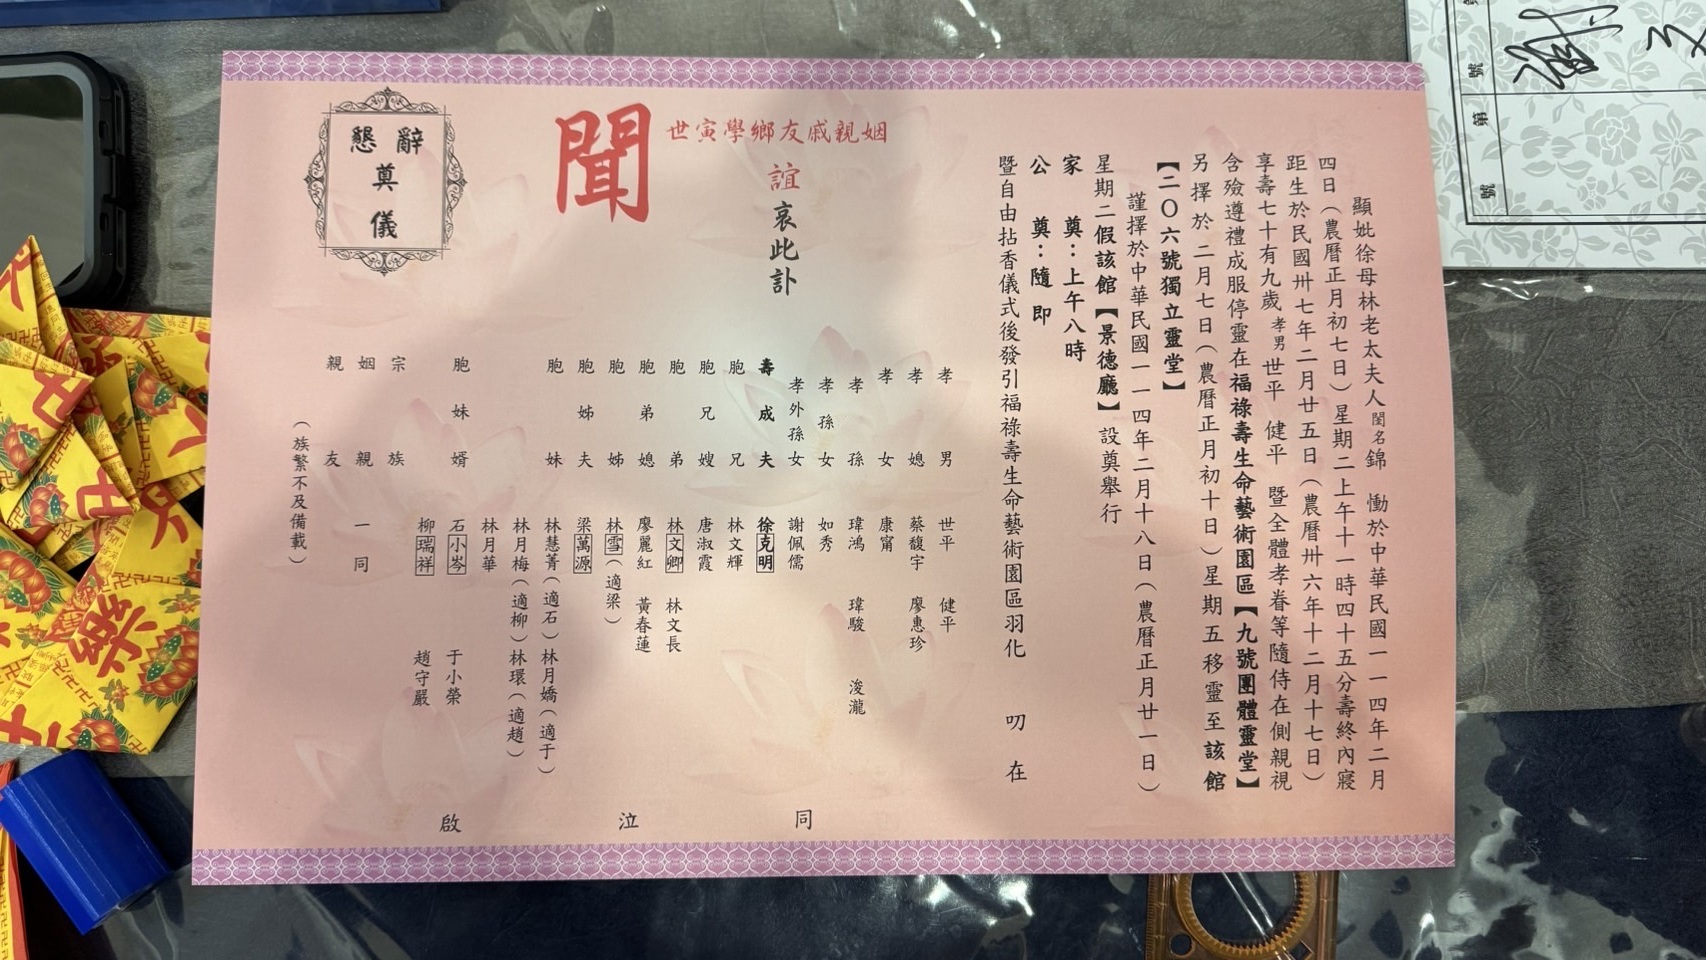 顯妣徐母林老太夫人閨名錦　慟於中華民國一一四年二月
四日（農曆正月初七日）星期二上午十一時四十五分壽終內寢
距生於民國卅七年二月廿五日（農曆卅六年十二月十七日）
享壽七十有九歲 孝男 世平　健平　暨全體孝眷等隨侍在側親視
含殮遵禮成服停靈在福祿壽生命藝術園區【九號團體靈堂】
另擇於二月七日（農曆正月初十日）星期五移靈至該館
【二〇六號獨立靈堂】
謹擇於中華民國一一四年二月十八日（農曆正月廿一日）
星期二假該館【景德廳】設奠舉行
家　奠：上午八時
公　奠：隨即
暨自由拈香儀式後發引福祿壽生命藝術園區羽化　叨　在
姻親戚友鄉學寅世
誼 哀此訃
聞
孝男　世平　健平
孝媳　蔡馥宇　廖惠珍
孝女　康甯
孝孫　瑋鴻　瑋駿　浚瀧
孝孫女　如秀
孝外孫女　謝佩儒
壽成夫　徐克明
胞兄　林文輝
胞兄嫂　唐淑霞
胞弟　林文卿　林文長
胞弟媳　廖麗紅　黃春蓮
胞姊　林雪（適梁）
胞姊夫　梁萬源
胞妹　林慧菁（適石）林月嬌（適于）
林月梅（適柳）林環（適趙）
林月華
胞妹婿　石小岑　于小榮
柳瑞祥　趙守嚴
宗族
姻親　一同
親友
（族繁不及備載）
同　泣　啟
懇辭
奠
儀
號
第
號